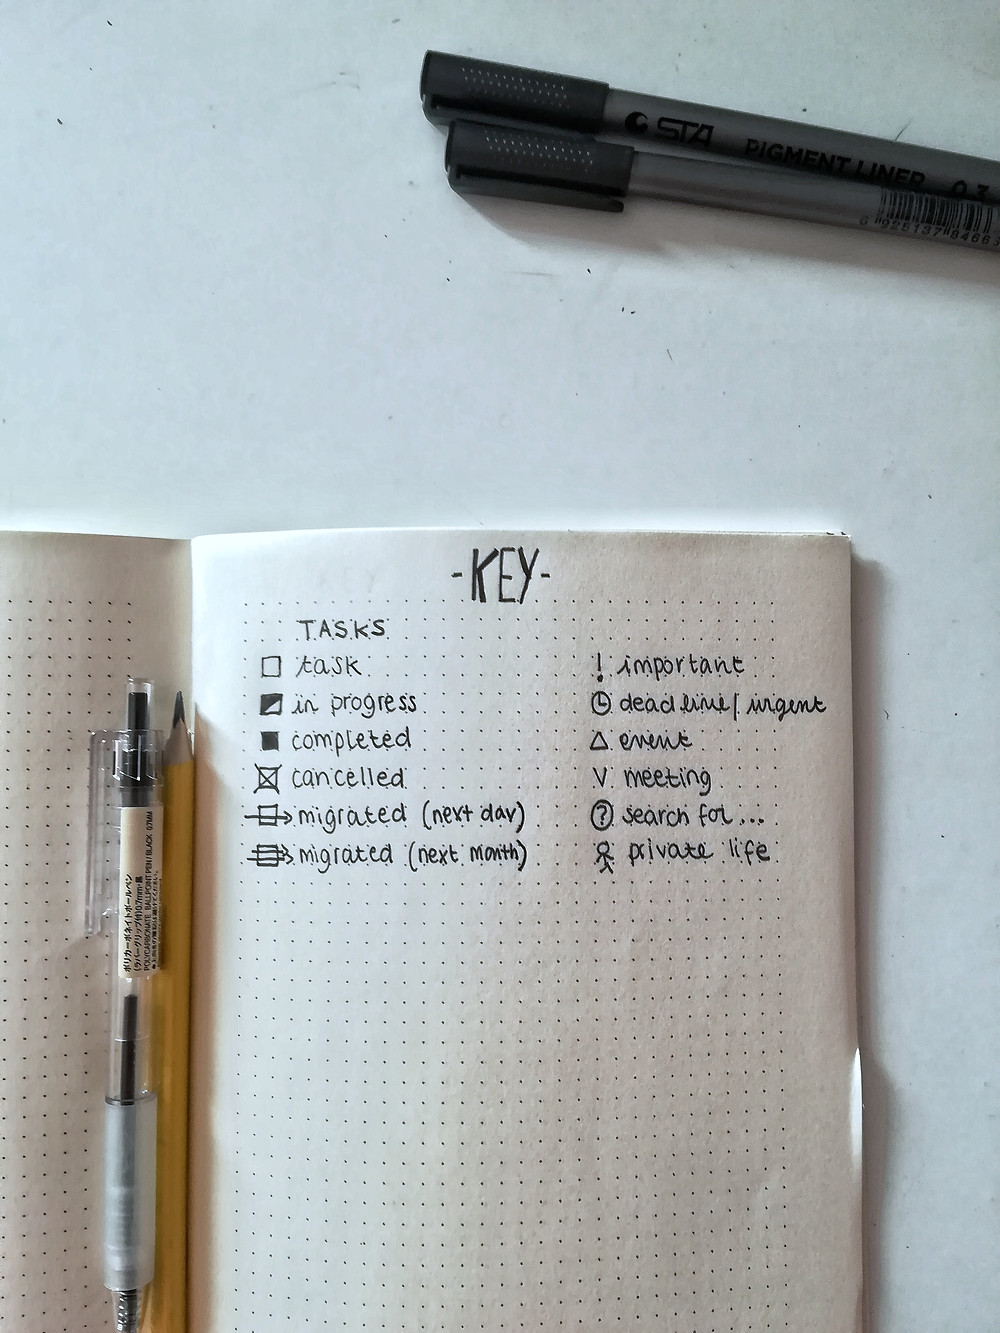 STA PIGMENT LINER 0.3
-KEY-
TASKS
task
in progress
completed
cancelled
migrated (next day)
migrated (next month)
! important
deadline/urgent
event
V meeting
? search for...
private life
ポリカーボネイトボールペン
POLYCARBONATE BALLPOINT PEN/BLACK 0.7MM